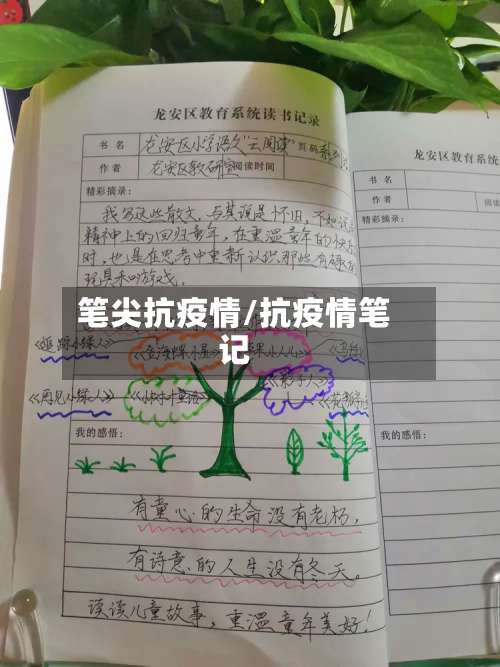 龙安区教育系统读书记录
书 名 龙安区小学语文"云阅读" 页码
作 者 龙安区教研室 阅读时间
精彩摘录:
我写这些散文,与其说是怀旧,不如说是
精神上的回归童年,在重温童年的快乐
时,也是在思考中重新认识那些有趣的
玩具和游戏。
笔尖抗疫情/抗疫情笔
记
《追踪小绿人》
《再见小绿人》
《影子人》
我的感悟:
有童心的生命没有老杨,
有诗意的人生没有冬天。
读读儿童故事,重温童年美好!
龙安区教育系统
书 名
作 者 阅读
精彩摘录:
我的感悟: